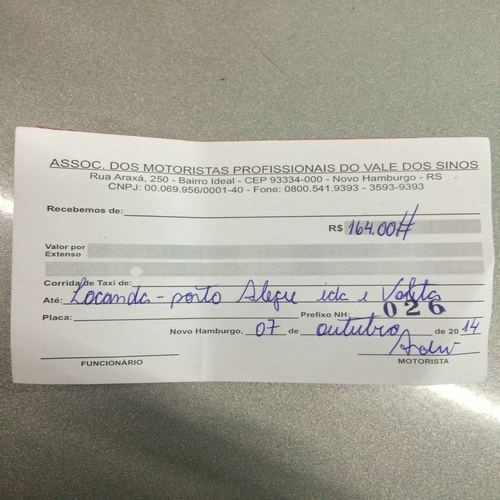 ASSOC. DOS MOTORISTAS PROFISSIONAIS DO VALE DOS SINOS
Rua Araxá, 250 - Bairro Ideal - CEP 93334-000 - Novo Hamburgo - RS -
CNPJ: 00.069.956/0001-40 - Fone: 0800.541.9393 - 3593-9393
Recebemos de:
R$ 164.00#
Valor por
Extenso
Corrida de Taxi de:
Até: Locanda - porto Alegre ida e Volta
Placa: Prefixo NH: 026
Novo Hamburgo, 07 de outubro de 2014
FUNCIONÁRIO MOTORISTA